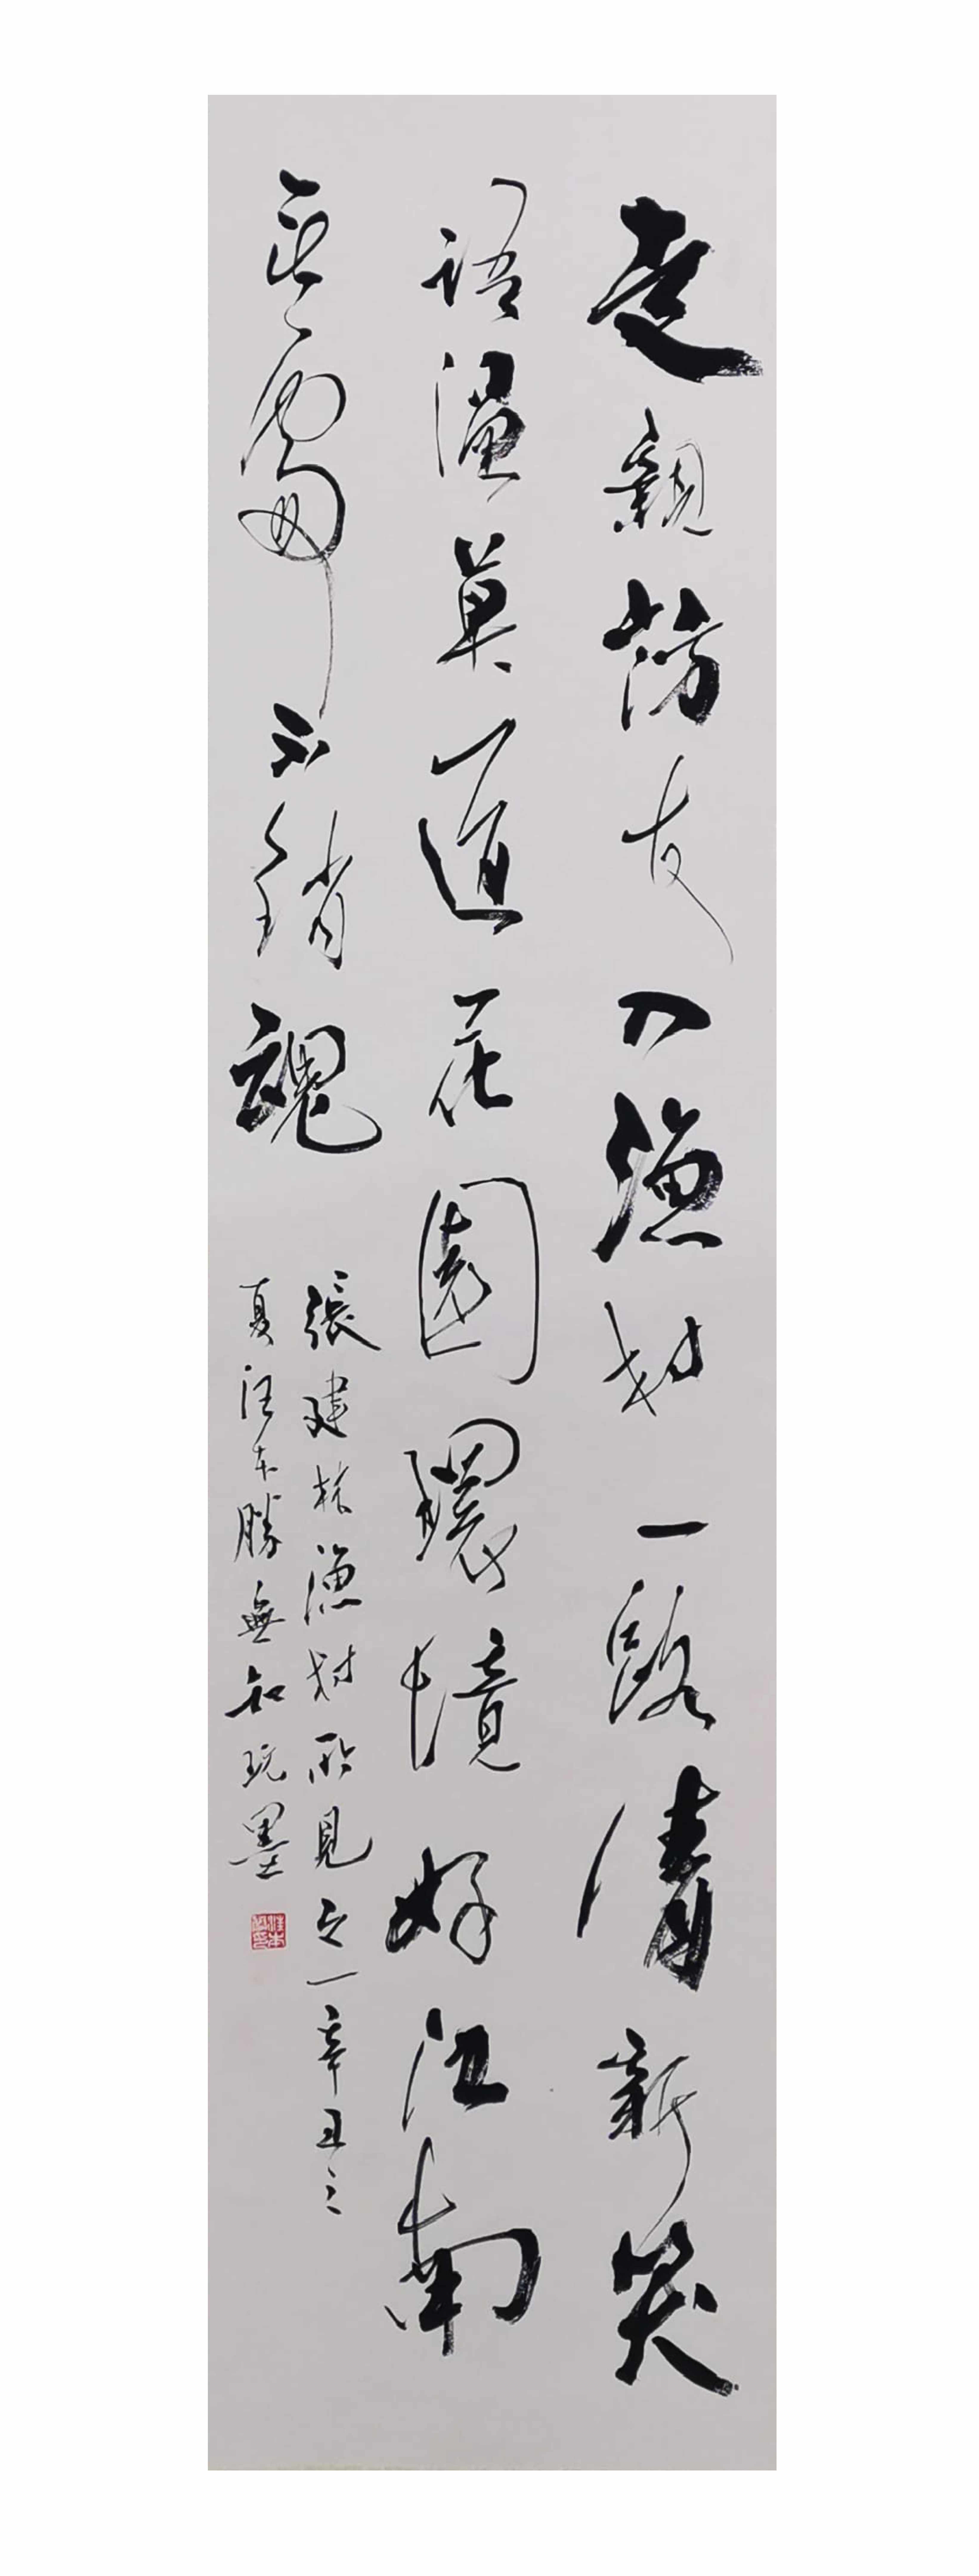 走親訪友入漁村一路清新笑
語溫莫道花園環境好江南
无處不銷魂
張建林漁村所見之一辛丑之
夏汪本勝無知玩墨